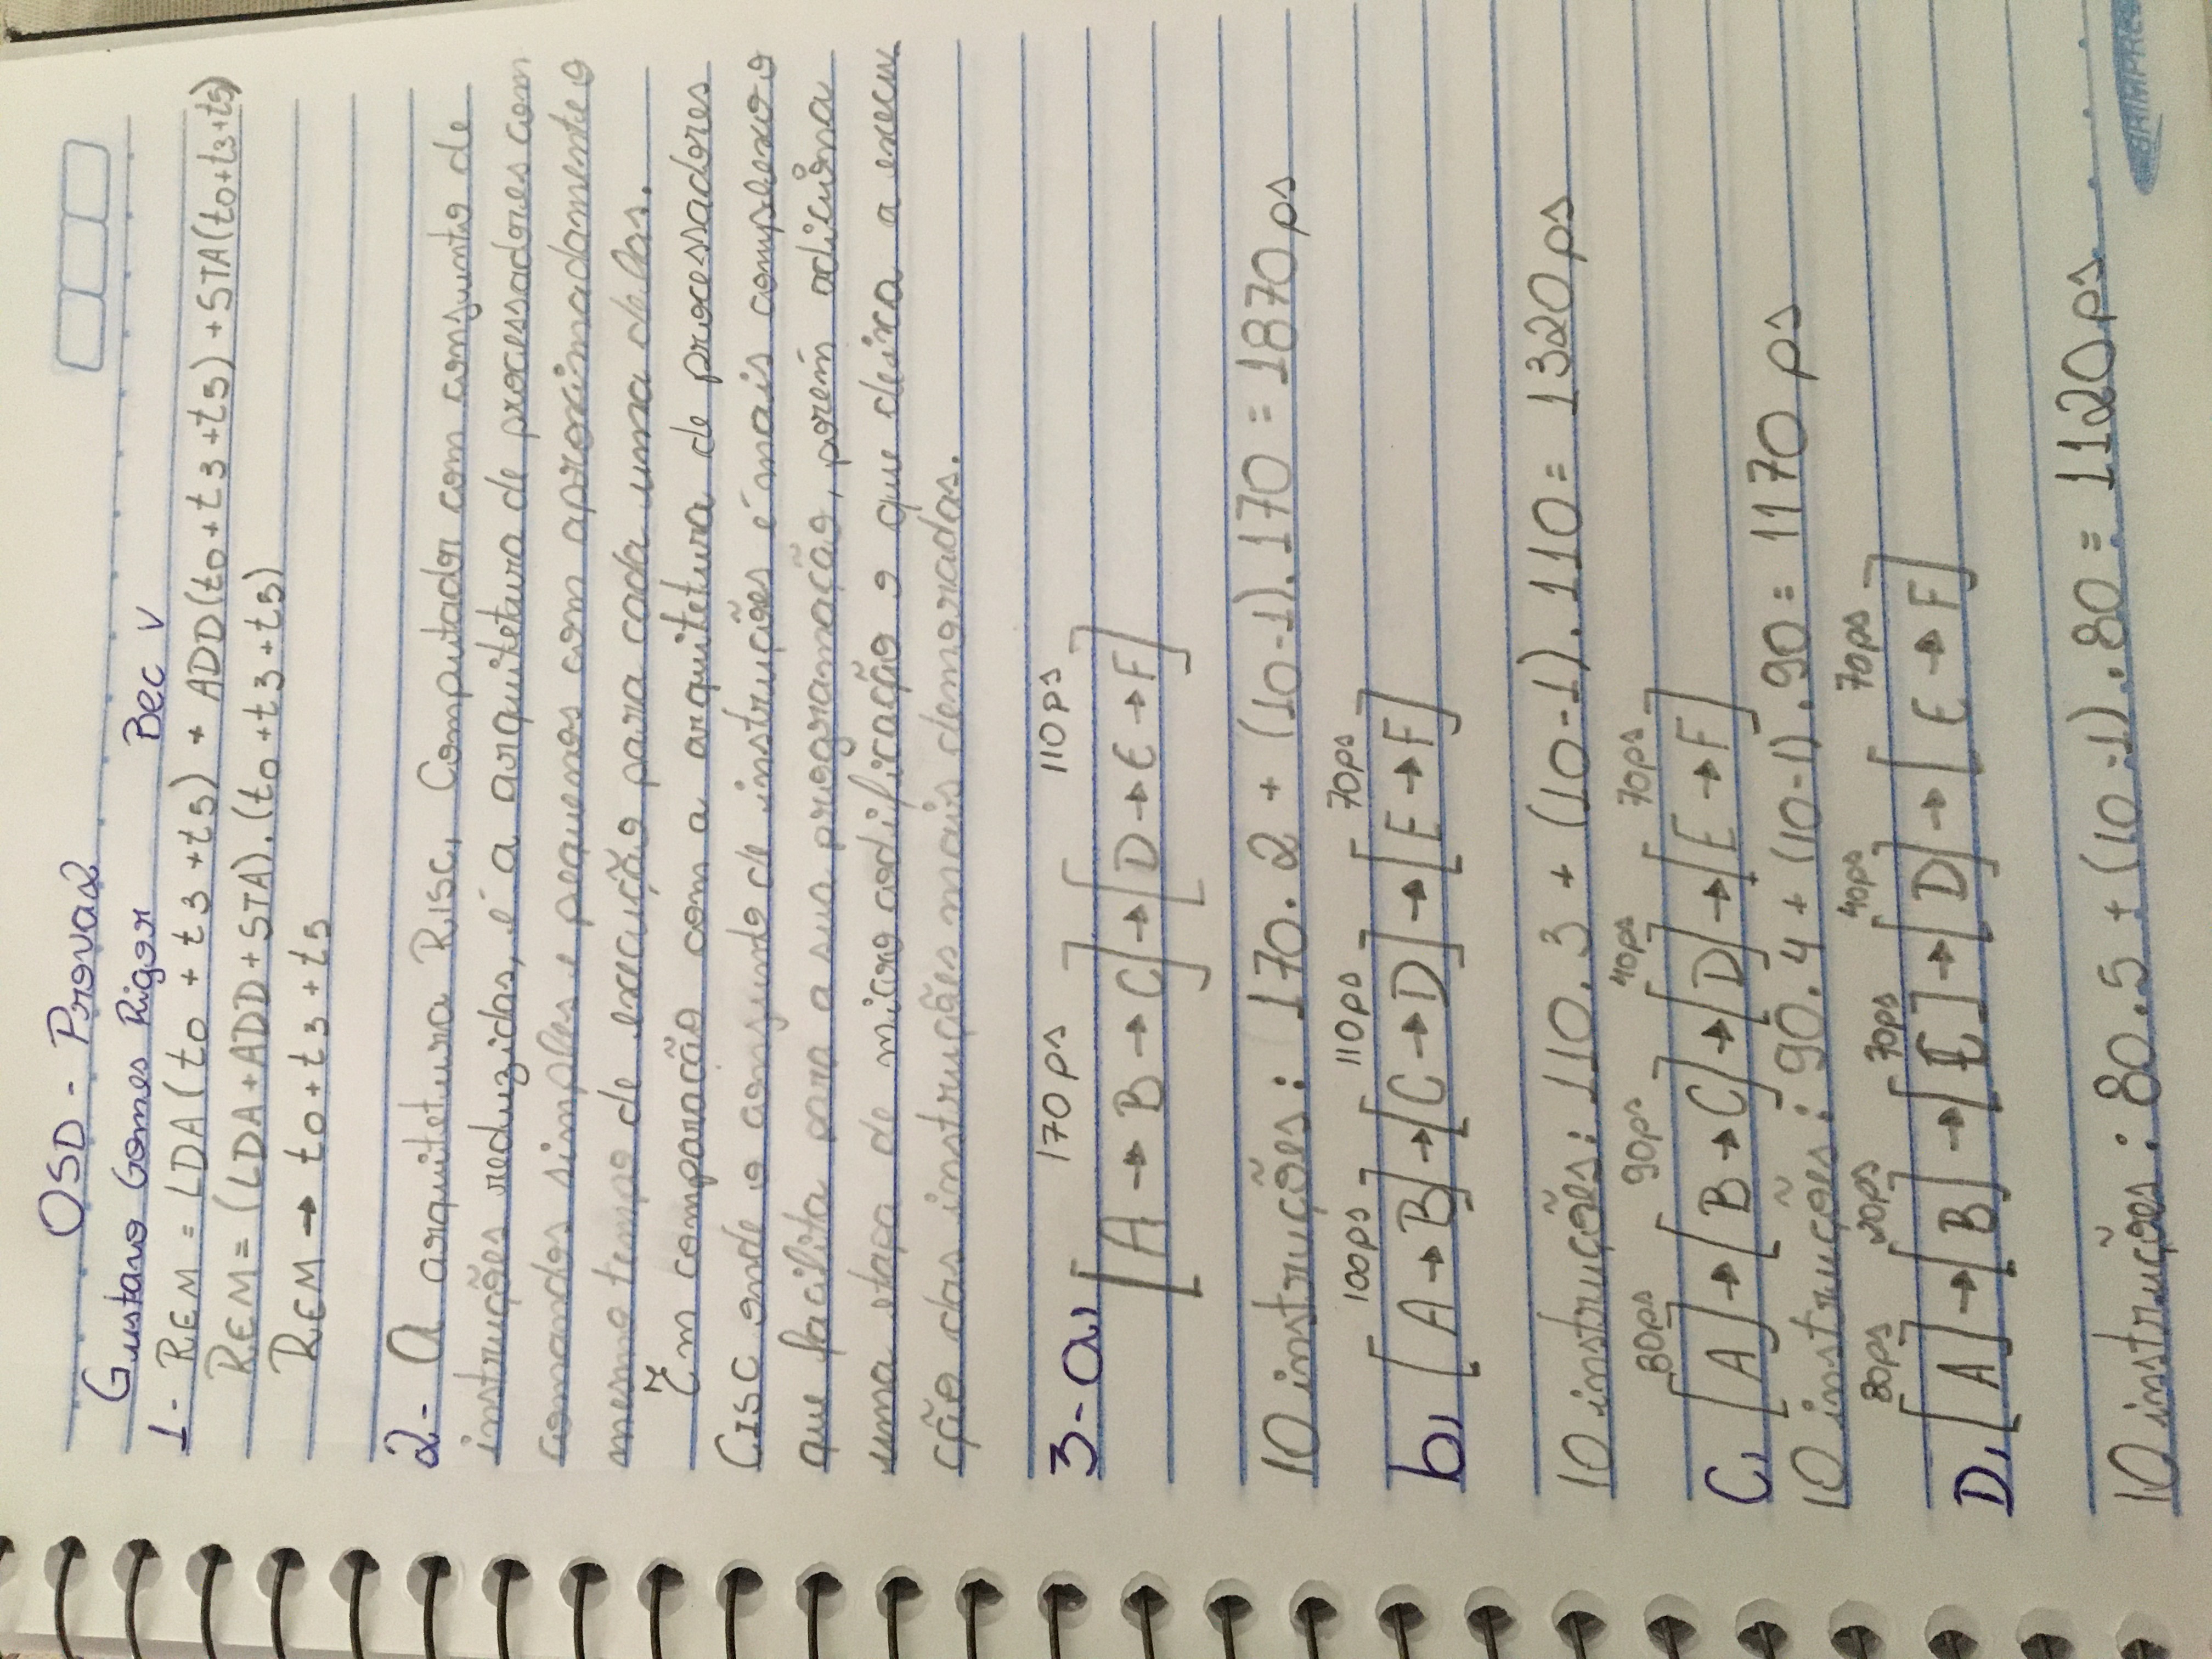 OSD - Prova 2
Gustavo Gomes Rigor Bec V
1- REM = LDA(t0 + t3 + t5) + ADD(t0+t3+t5) + STA(t0+t3+t5)
REM = (LDA + ADD + STA).(t0 + t3 + t5)
REM → t0 + t3 + t5
2- A arquitetura RISC, Computador com conjunto de
instruções reduzidas, é a arquitetura de processadores com
comandos simples e pequenos com aproximadamente o
mesmo tempo de execução para cada uma delas.
Em comparação com a arquitetura de processadores
CISC onde o conjunto de instruções é mais complexo o
que facilita para a sua programação, porém adiciona
uma etapa de micro codificação o que deixa a execu-
ção das instruções mais demoradas.
170 ps 110 ps
3- a, [A → B → C] → [D → E → F]
10 instruções: 170.2 + (10-1).170 = 1870 ps
100ps 110ps 70ps
b, [A → B] → [C → D] → [E → F]
10 instruções: 110.3 + (10-1).110 = 1320 ps
80ps 90ps 40ps 70ps
C, [A] → [B → C] → [D] → [E → F]
10 instruções: 90.4 + (10-1).90 = 1170 ps
80ps 20ps 70ps 40ps 70ps
D, [A] → [B] → [C] → [D] → [E → F]
10 instruções: 80.5 + (10-1).80 = 1120 ps